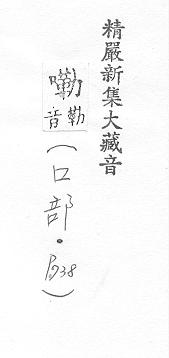 精嚴新集大藏音
嘞
勒音
(口部·)